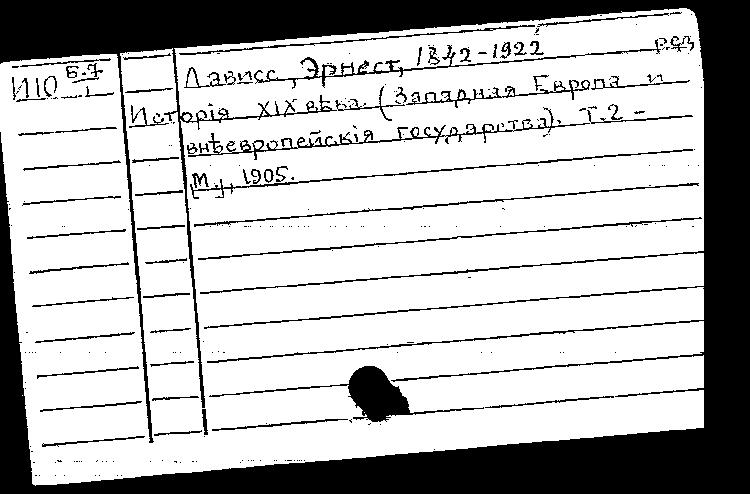 И10 Б.7/1
Лависс, Эрнест, 1842-1922 ред.
Исторія XIX вѣка. (Западная Европа и
внѣевропейскія государства). Т.2 -
[М.], 1905.